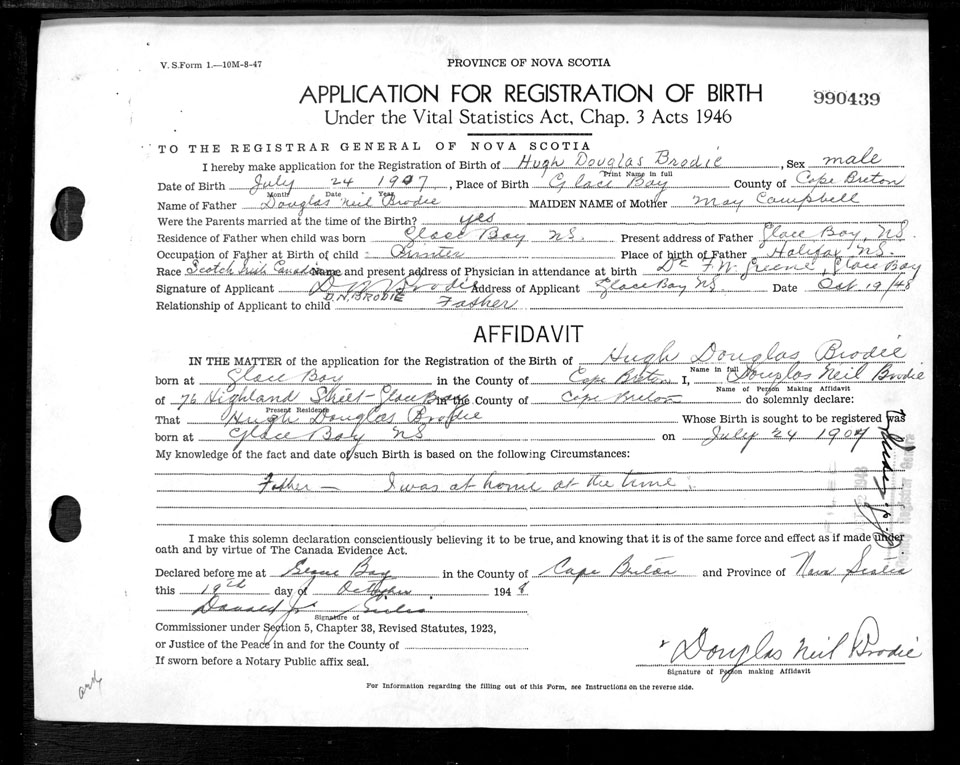 V. S. Form 1.—10M-8-47
PROVINCE OF NOVA SCOTIA
APPLICATION FOR REGISTRATION OF BIRTH
990439
Under the Vital Statistics Act, Chap. 3 Acts 1946
TO THE REGISTRAR GENERAL OF NOVA SCOTIA
I hereby make application for the Registration of Birth of Hugh Douglas Brodie, Sex male
Print Name in full
Date of Birth July 24 1907, Place of Birth Glace Bay County of Cape Breton
Month Date Year
Name of Father Douglas Neil Brodie MAIDEN NAME of Mother May Campbell
Were the Parents married at the time of the Birth? yes
Residence of Father when child was born Glace Bay NS. Present address of Father Glace Bay, NS.
Occupation of Father at Birth of child Printer Place of birth of Father Halifax NS.
Race Scotch Irish Canadian Name and present address of Physician in attendance at birth Dr F. W. Greene, Glace Bay
Signature of Applicant D N Brodie Address of Applicant Glace Bay NS Date Oct 19/48
D.N. BRODIE
Relationship of Applicant to child Father
AFFIDAVIT
IN THE MATTER of the application for the Registration of the Birth of Hugh Douglas Brodie
Name in full
born at Glace Bay in the County of Cape Breton I, Douglas Neil Brodie
Name of Person Making Affidavit
of 76 Highland Street - Glace Bay in the County of Cape Breton do solemnly declare:
Present Residence
That Hugh Douglas Brodie Whose Birth is sought to be registered was
born at Glace Bay NS on July 24 1907
My knowledge of the fact and date of such Birth is based on the following Circumstances:
Father — I was at home at the time.
I make this solemn declaration conscientiously believing it to be true, and knowing that it is of the same force and effect as if made under
oath and by virtue of The Canada Evidence Act.
Declared before me at Glace Bay in the County of Cape Breton and Province of Nova Scotia
this 19th day of October 1948
Donald J.
Signature of
Commissioner under Section 5, Chapter 38, Revised Statutes, 1923,
or Justice of the Peace in and for the County of
If sworn before a Notary Public affix seal.
Douglas Neil Brodie
Signature of Person making Affidavit
For Information regarding the filling out of this Form, see Instructions on the reverse side.